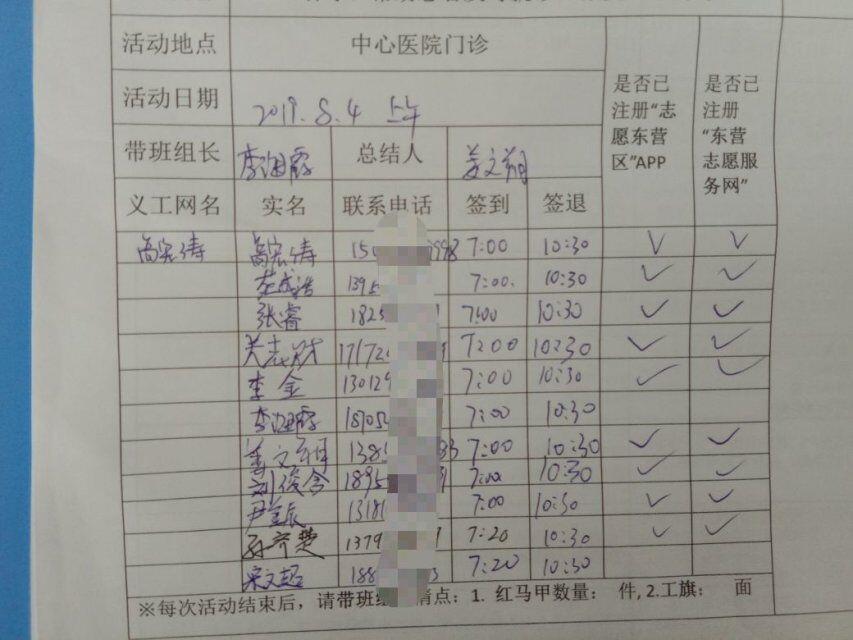 活动地点 中心医院门诊
是否已注册“志愿东营区”APP
是否已注册“东营志愿服务网”
活动日期 2019.8.4 上午
带班组长 李 霞 总结人 姜文翔
义工网名 实名 联系电话 签到 签退
高宏涛 高宏涛 150 998 7:00 10:30 √ √
左成浩 1395 7:00. 10:30 √ √
张睿 1825 1 7:00 10:30 √ √
关志财 17172 9 7:00 10:30 √ √
李金 130129 7:00 10:30 √ √
李 霞 18705 7:00 10:30
姜文翔 1385 83 7:00 10:30 √ √
刘俊含 1895 9 7:00 10:30 √ √
尹 辰 1318 7:00 10:30 √ √
孙齐楚 1379 1 7:20 10:30 √ √
宋文超 188 3 7:20 10:30
※每次活动结束后，请带班组 清点：1. 红马甲数量： 件, 2.工旗： 面